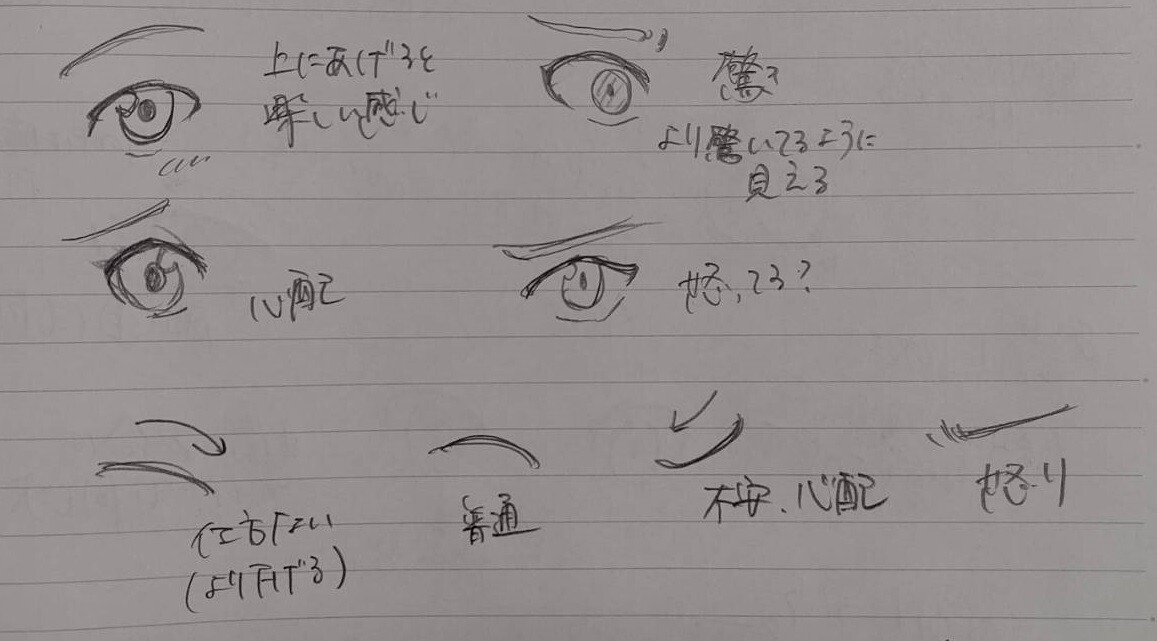 上にあげると
楽しい感じ
驚き
より驚いてるように
見える
心配
怒ってる?
仕方ない
(より下げる)
普通
不安、心配
怒り